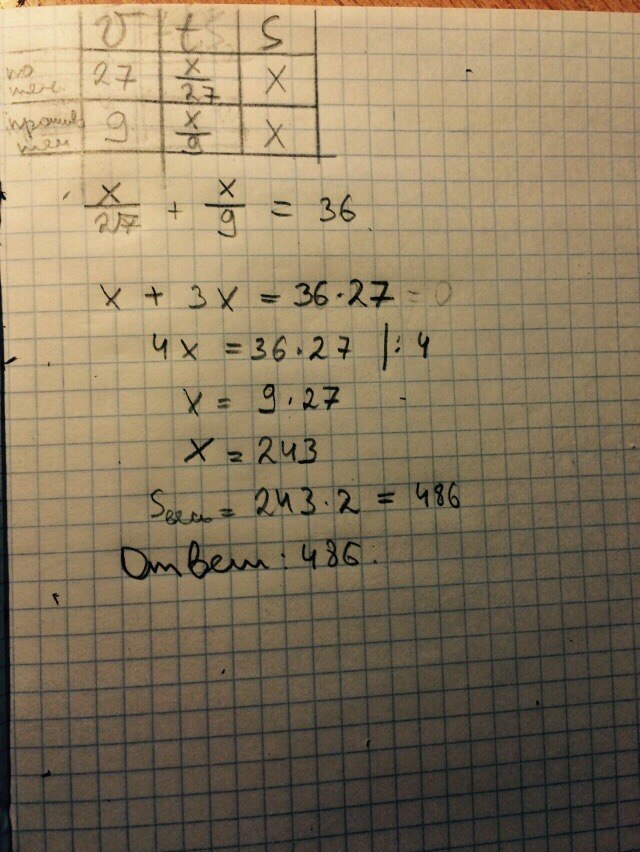 v t S
по теч. 27 x/27 x
против теч 9 x/9 x
x/27 + x/9 = 36
x + 3x = 36·27 = 0
4x = 36·27 |: 4
x = 9·27
x = 243
S = 243·2 = 486
Ответ: 486.